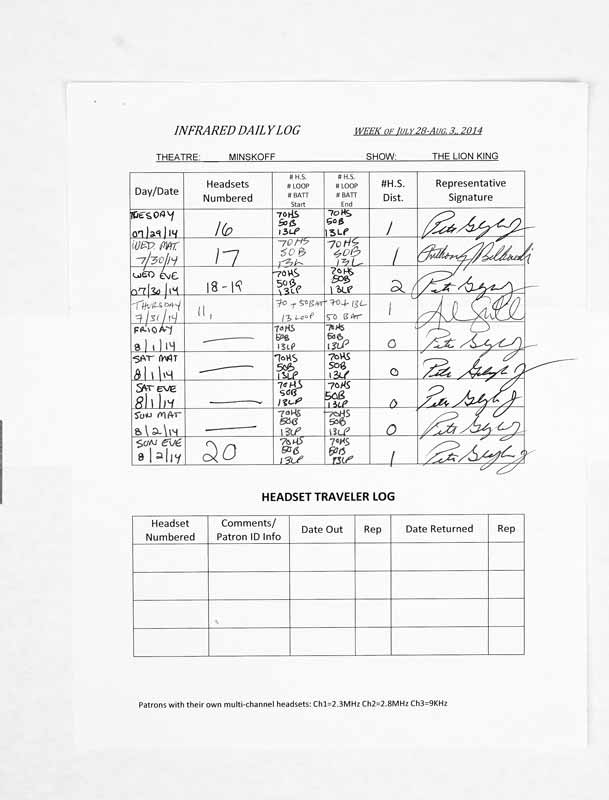 INFRARED DAILY LOG WEEK OF JULY 28-AUG. 3, 2014
THEATRE: MINSKOFF SHOW: THE LION KING
Day/Date
Headsets
Numbered
# H.S.
# LOOP
# BATT
Start
# H.S.
# LOOP
# BATT
End
#H.S.
Dist.
Representative
Signature
TUESDAY
07/29/14
16
70HS
50B
13LP
70HS
50B
13LP
1
WED MAT
7/30/14
17
70HS
50B
13L
70HS
50B
13L
1
WED EVE
07/30/14
18-19
70HS
50B
13LP
70HS
50B
13LP
2
THURSDAY
7/31/14
11,
70 + 50BAT
13 LOOP
70 + 13L
50 BAT
1
FRIDAY
8/1/14
70HS
50B
13LP
70HS
50B
13LP
0
SAT MAT
8/1/14
70HS
50B
13LP
70HS
50B
13LP
0
SAT EVE
8/1/14
70HS
50B
13LP
70HS
50B
13LP
0
SUN MAT
8/2/14
70HS
50B
13LP
70HS
50B
13LP
0
SUN EVE
8/2/14
20
70HS
50B
13LP
70HS
50B
13LP
1
HEADSET TRAVELER LOG
Headset
Numbered
Comments/
Patron ID Info
Date Out
Rep
Date Returned
Rep
Patrons with their own multi-channel headsets: Ch1=2.3MHz Ch2=2.8MHz Ch3=9KHz